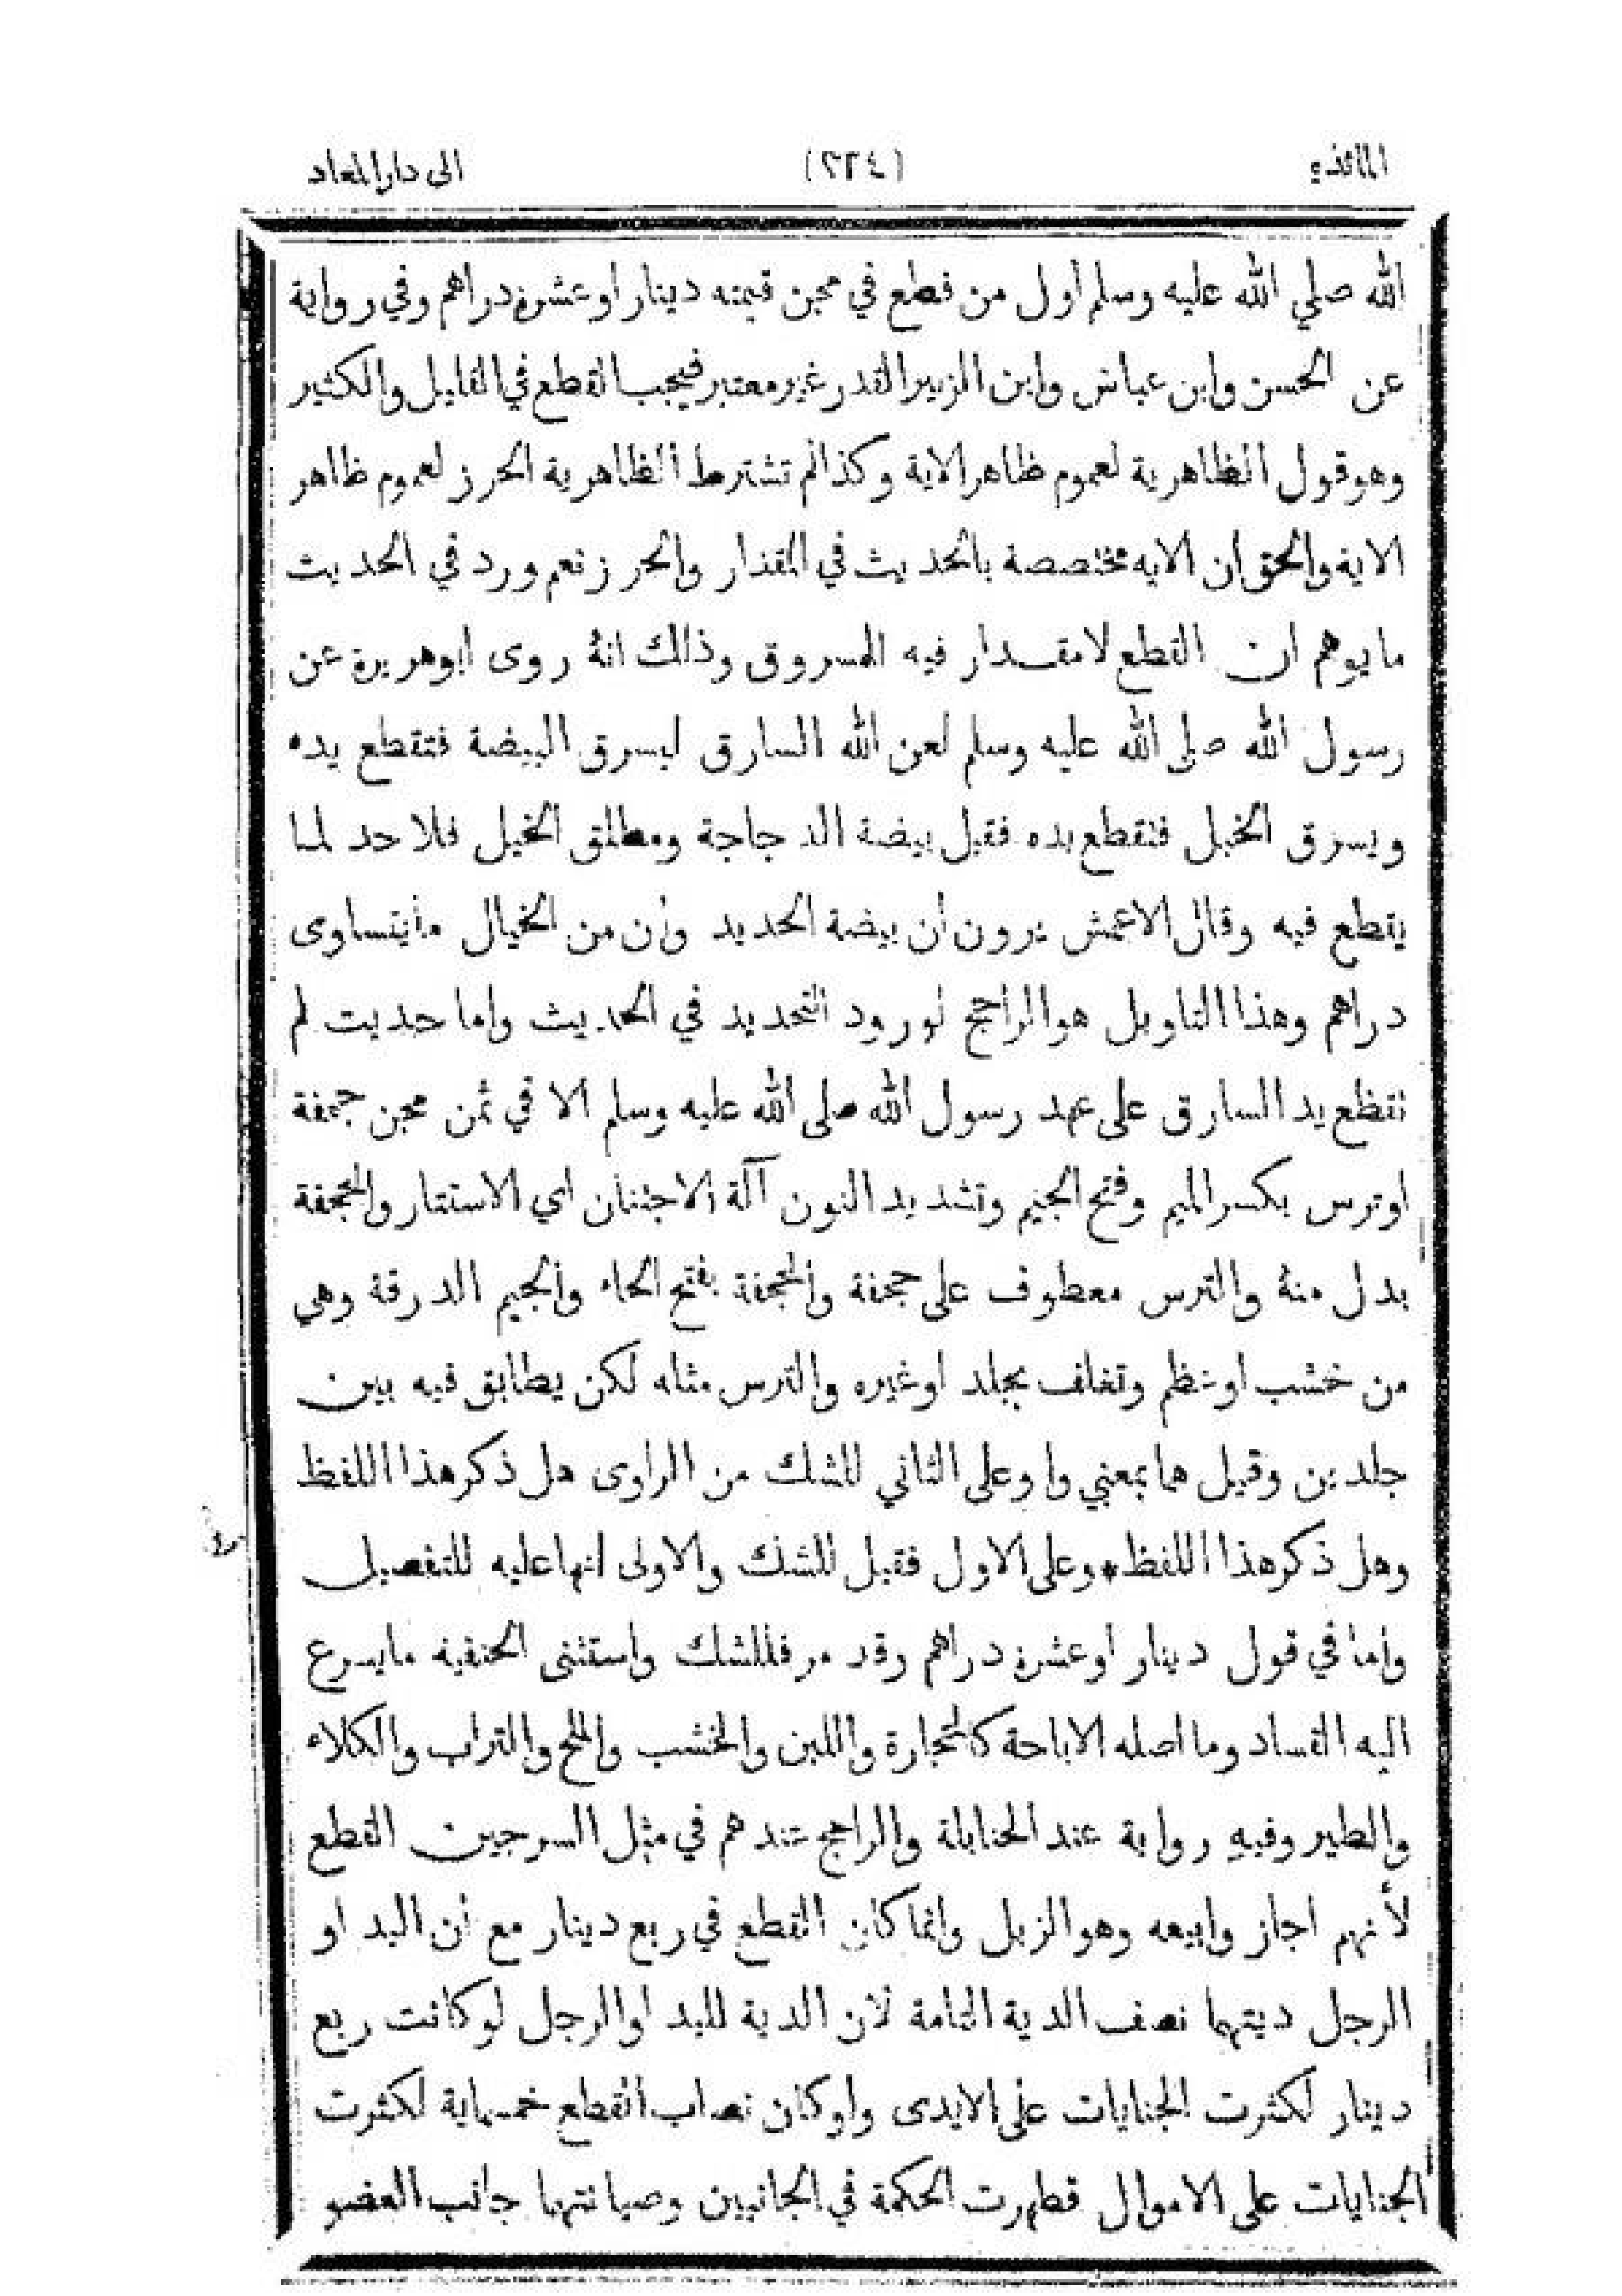 المائدة (٢٢٤) الى دار المعاد
الله صلي الله عليه وسلم أول من قطع في مجن قيمته دينار أو عشرة دراهم وفي رواية
عن الحسن وابن عباس وابن الزبير القدر غير معتبر فيجب القطع في القليل والكثير
وهو قول الظاهرية لعموم ظاهر الاية وكذا لم تشترط الظاهرية الحرز لعموم ظاهر
الاية والحق أن الايه مخصصة بالحديث في المقدار والحرز نعم ورد في الحديث
ما يوهم ان القطع لا مقدار فيه المسروق وذلك انهُ روى ابو هريرة عن
رسول الله صلى الله عليه وسلم لعن الله السارق ليسرق البيضة فتقطع يده
ويسرق الخبل فتقطع يده فقيل بيضة الدجاجة ومطلق الخيل فلا حد لما
يقطع فيه وقال الاعمش يرون أن بيضة الحديد وأن من الخيال ما يتساوى
دراهم وهذا التاويل هو الراجح لورود التحديد في الحديث واما حديت لم
تقطع يد السارق على عهد رسول الله صلى الله عليه وسلم الا في ثمن مجن جحفة
او ترس بكسر الميم وفتح الجيم وتشديد النون آلة الاجتنان اي الاستتار والحجفة
بدل منهُ والترس معطوف على جحفة والحجفة بفتح الحاء والجيم الدرقة وهي
من خشب او عظم وتغلف بجلد او غيره والترس مثله لكن يطابق فيه بين
جلدين وقيل هما بمعني واو على الثاني للشك من الراوى هل ذكر هذا اللفظ
وهل ذكر هذا اللفظ * وعلى الاول فقيل للشك والاولى انها عليه للتفصيل
وأما في قول دينار أو عشرة دراهم وقد مر فللشك واستثنى الحنفيه ما يسرع
اليه الفساد وما اصله الاباحة كالحجارة واللبن والخشب والملح والتراب والكلاء
والطير وفيه رواية عند الحنابلة والراجح عندهم في مثل السرجين القطع
لأنهم اجاز وابيعه وهو الزبل وانما كان القطع في ربع دينار مع أن اليد او
الرجل ديتهما نصف الدية التامة لان الدية لليد او الرجل لو كانت ربع
دينار لكثرت الجنايات على الايدى ولو كان نصاب القطع خمسماية لكثرت
الجنايات على الاموال فظهرت الحكمة في الجانبين وصيانتهما جانب العضو